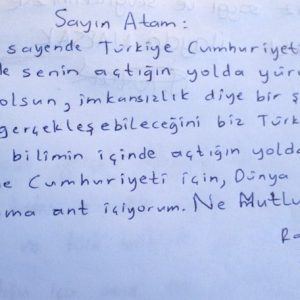 Sayın Atam:
sayende Türkiye Cumhuriyeti
senin açtığın yolda yürü
olsun, imkansızlık diye bir ş
gerçekleşebileceğini biz Türk
bilimin içinde açtığın yolda
Cumhuriyeti için, Dünya
ant içiyorum. Ne Mutlu